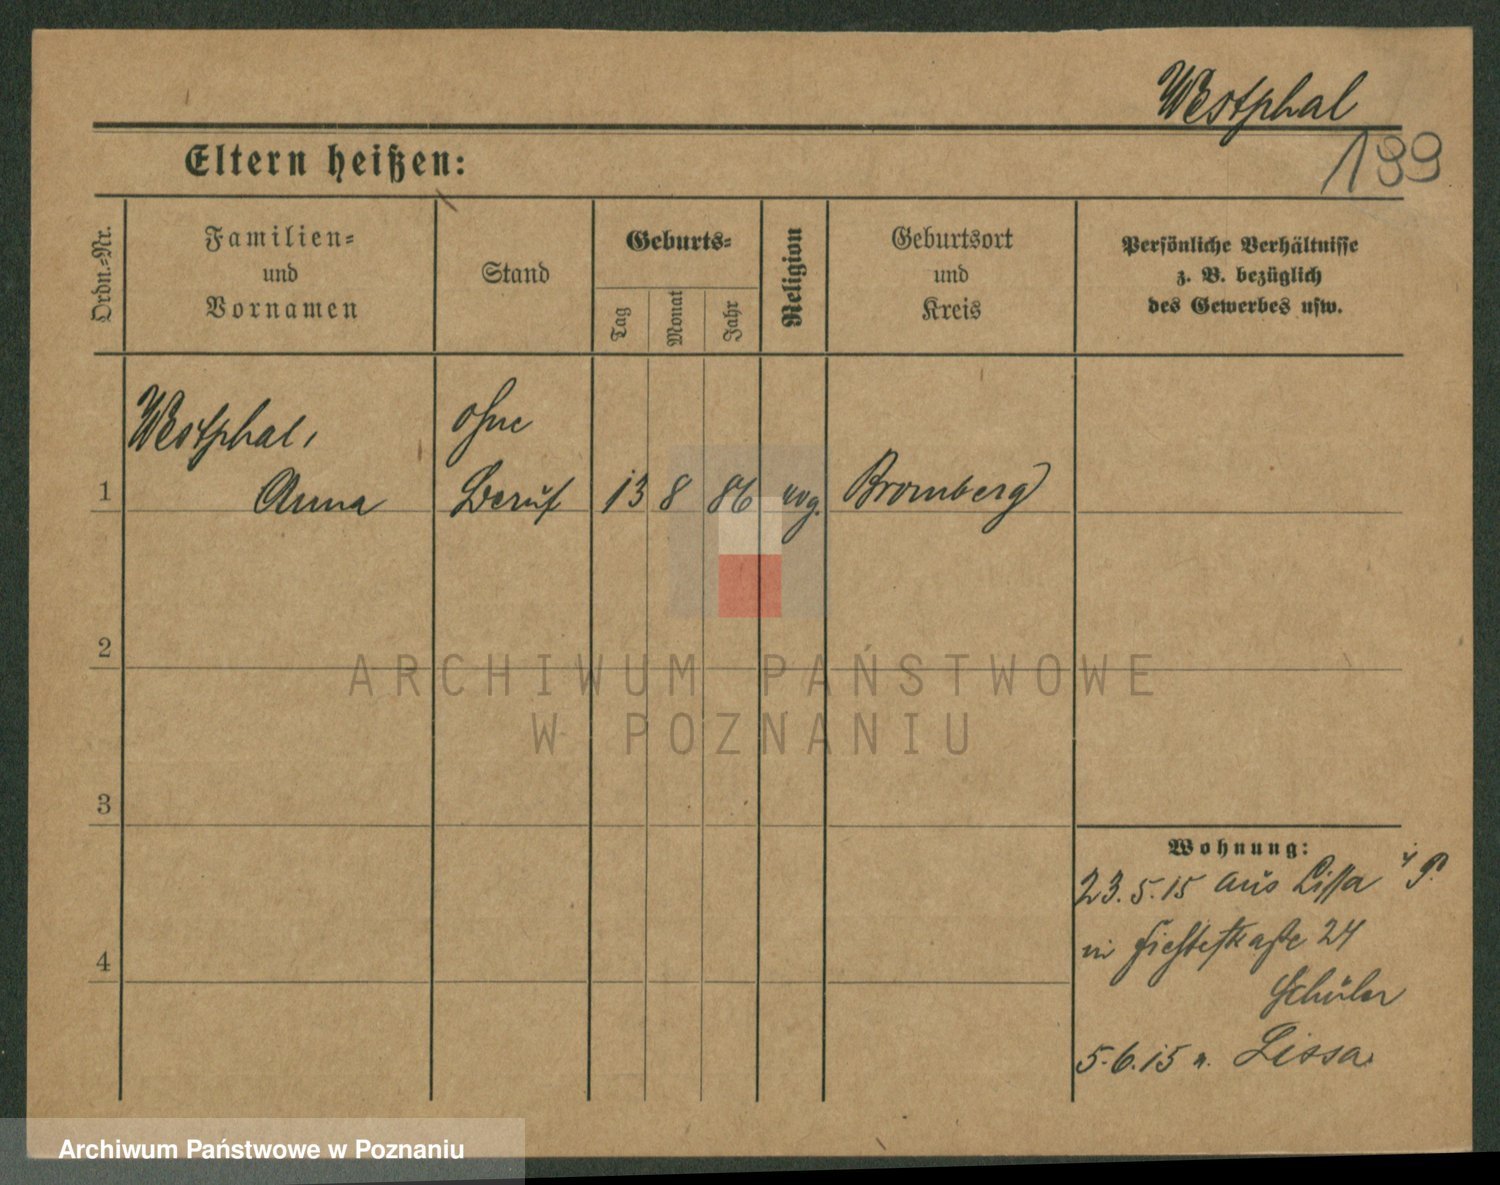 Westphal
199
Eltern heißen:
Ordn.-Nr.
Familien-
und
Vornamen
Stand
Geburts-
Tag
Monat
Jahr
Religion
Geburtsort
und
Kreis
Persönliche Verhältnisse
z. B. bezüglich
des Gewerbes usw.
Westphal,
ohne
1 Anna Beruf 13 8 86 evg. Bromberg
2
ARCHIWUM PAŃSTWOWE
W POZNANIU
3
Wohnung:
23.5.15 aus Lissa i P.
in Fichtestraße 24
Schüler
4
5.6.15 n. Lissa.
Archiwum Państwowe w Poznaniu